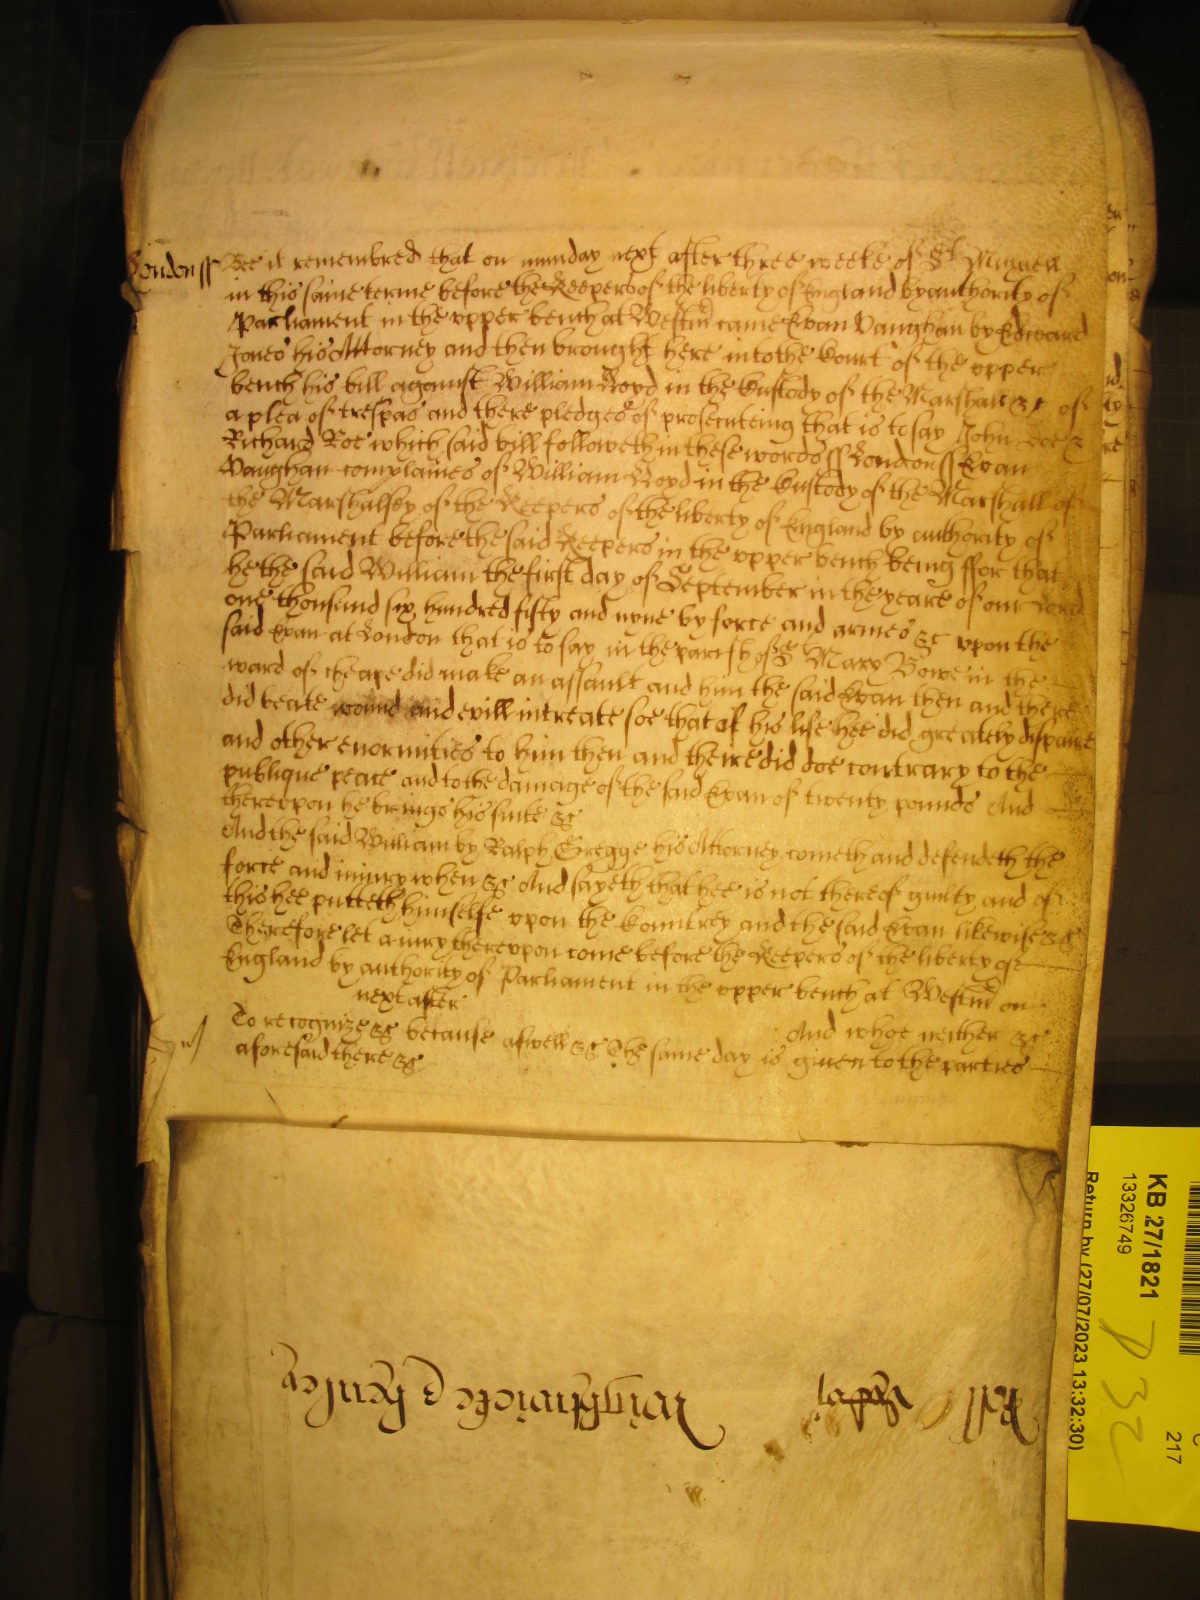 London ss Bee it remembred that on munday next after three weeks of St Michaell
in this same terme before the Keepers of the liberty of England by authority of
Parliament in the upper bench at Westmr came Evan Vaughan by Edward
Jones his Attorney and then brought here into the Court of the upper
bench his bill against William Loyd in the Custody of the Marshall &c of
a plea of trespas and there pledges of prosecuteing that is to say John Doe &
Richard Roe which said bill followeth in these words ss London ss Evan
Vaughan complaines of William Loyd in the Custody of the Marshall of
the Marshalsey of the Keepers of the liberty of England by authority of
Parliament before the said Keepers in the upper bench being ffor that
he the said William the first day of September in the yeare of our Lord
one thousand six hundred fifty and nyne by force and armes &c upon the
said Evan at London that is to say in the parish of St Mary Bowe in the
ward of cheape did make an assault and him the said Evan then and there
did beate wound and evill intreate soe that of his life hee did greately dispaire
and other enormities to him then and there did doe contrary to the
publique peace and to the damage of the said Evan of twenty pounds And
thereupon he brings his suite &c
And the said William by Ralph Gregge his Attorney cometh and defendeth the
force and iniury when &c And sayeth that hee is not thereof guilty and of
this hee putteth himselfe upon the Countrey and the said Evan likewise &c
Therefore let a iury thereupon come before the Keepers of the liberty of
England by authority of Parliament in the upper bench at Westmr on
next after And whoe neither &c
To recognize &c because aswell &c The same day is given to the parties
aforesaid there &c
KB 27/1821
13326749
Return by (27/07/2023 13:32:30)
217